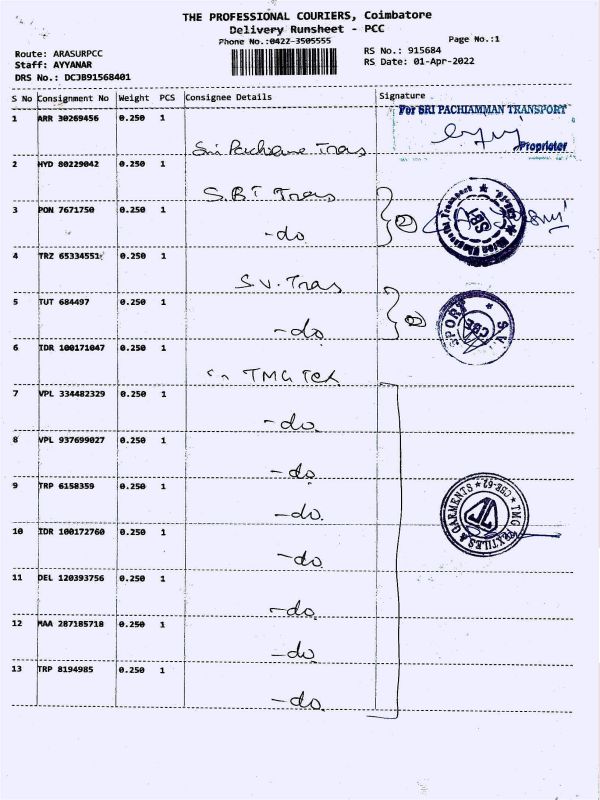 THE PROFESSIONAL COURIERS, Coimbatore
Delivery Runsheet - PCC
Phone No.:0422-3505555
Page No.:1
Route: ARASURPCC
RS No.: 915684
Staff: AYYANAR
RS Date: 01-Apr-2022
DRS No.: DCJB91568401
S No Consignment No Weight PCS Consignee Details Signature
For SRI PACHIAMMAN TRANSPORT
1 ARR 30269456 0.250 1
Proprietor
Sri Trans
2 HYD 80229042 0.250 1
S.B.T Trans
3 PON 7671750 0.250 1
②
SBT
-do
4 TRZ 65334551 0.250 1
S.V. Tras
5 TUT 684497 0.250 1
②
S.V.
CBE
-do
6 IDR 100171047 0.250 1
TMG Tex
7 VPL 334482329 0.250 1
-do.
8 VPL 937699027 0.250 1
-do.
9 TRP 6158359 0.250 1
TMG TEXTILES & GARMENTS ★ CBE-62 ★
-do.
10 IDR 100172760 0.250 1
-do.
11 DEL 120393756 0.250 1
-do.
12 MAA 287185718 0.250 1
-do
13 TRP 8194985 0.250 1
-do.